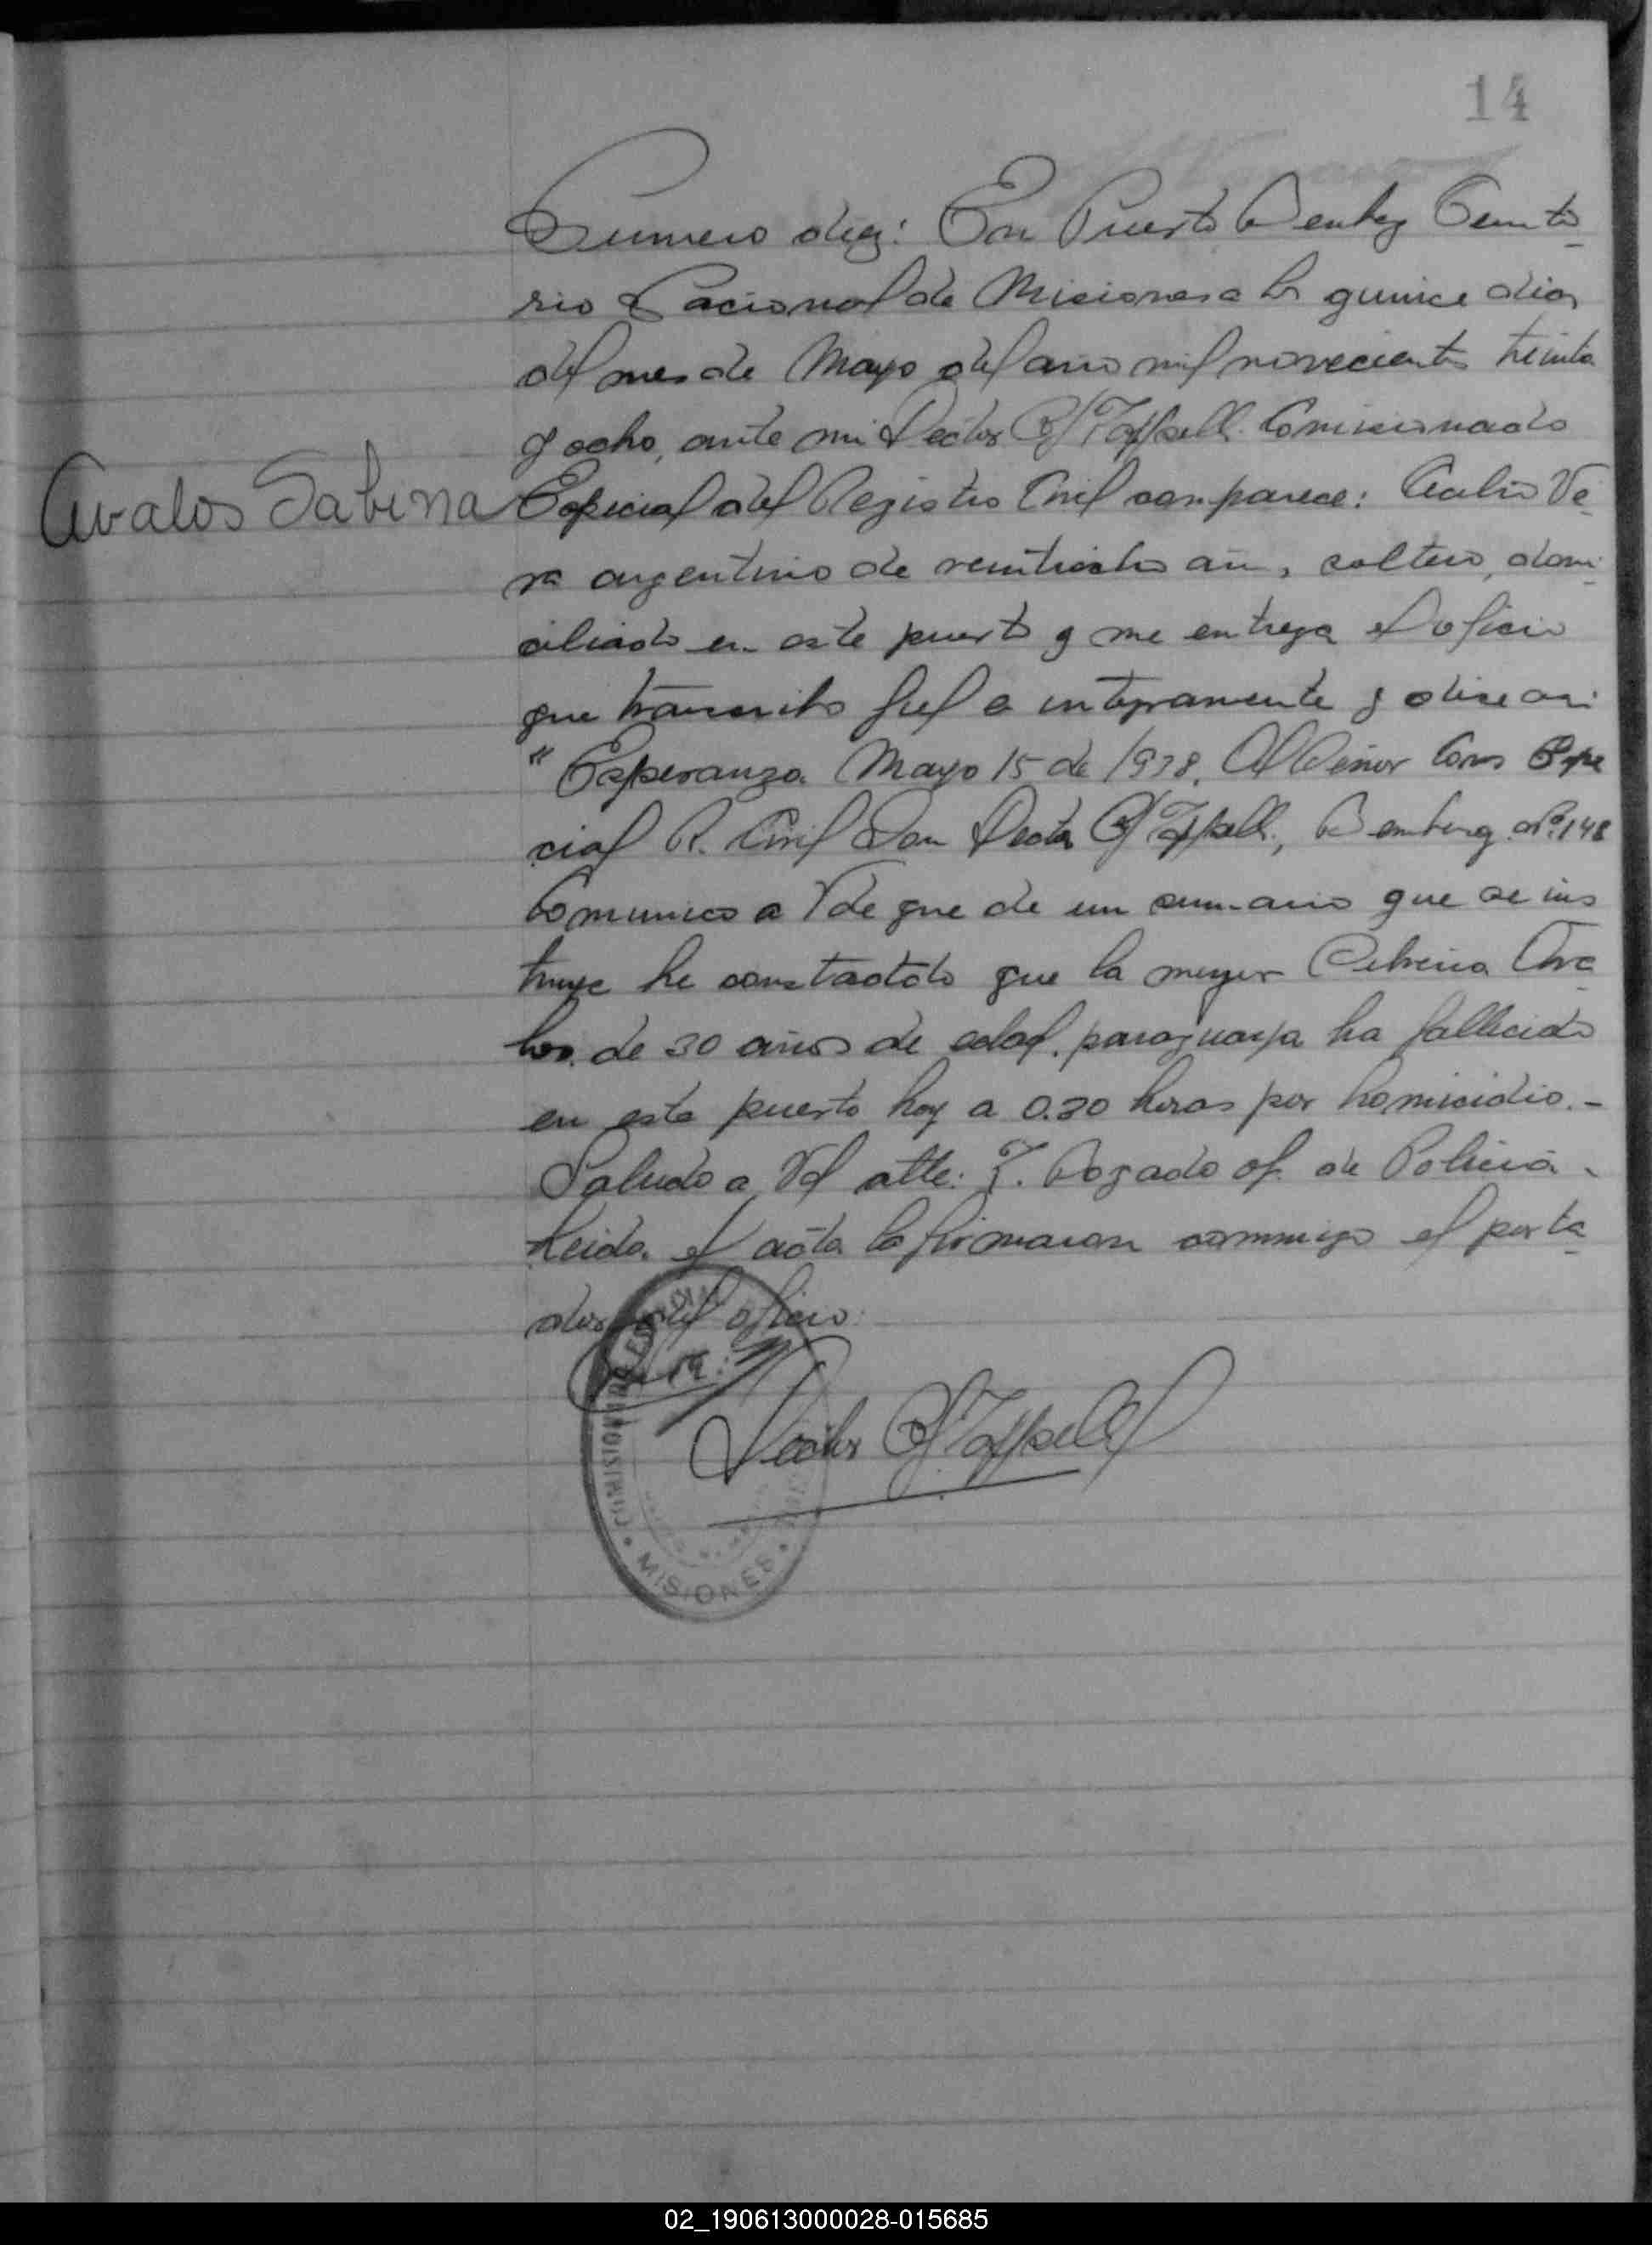 14
Numero diez: En Puerto Bemberg Territo-
rio Nacional de Misiones a los quince dias
del mes de Mayo del año mil novecientos treinta
y ocho, ante mi Hector Comisionado
Especial del Registro Civil comparece: Ve-
Avalos Sabina
ra argentino de veintiocho años, soltero, domi-
ciliado en este puerto y me entrega el oficio
que transcribo fiel e integramente y dice asi:
"Esperanza Mayo 15 de 1938. Al Señor Comis Espe
cial R. Civil Don Hector Bemberg. Nº 148
Comunico a Vd que de un sumario que se ins
truye he constatado que la mujer Ava
los de 30 años de edad, paraguaya ha fallecido
en este puerto hoy a 0.30 horas por homicidio.-
Saludo a Vd atte: of. de Policia.
Leida el acta la firmaron conmigo el porta
dor del oficio.
Hector
MISIONES
02_190613000028-015685